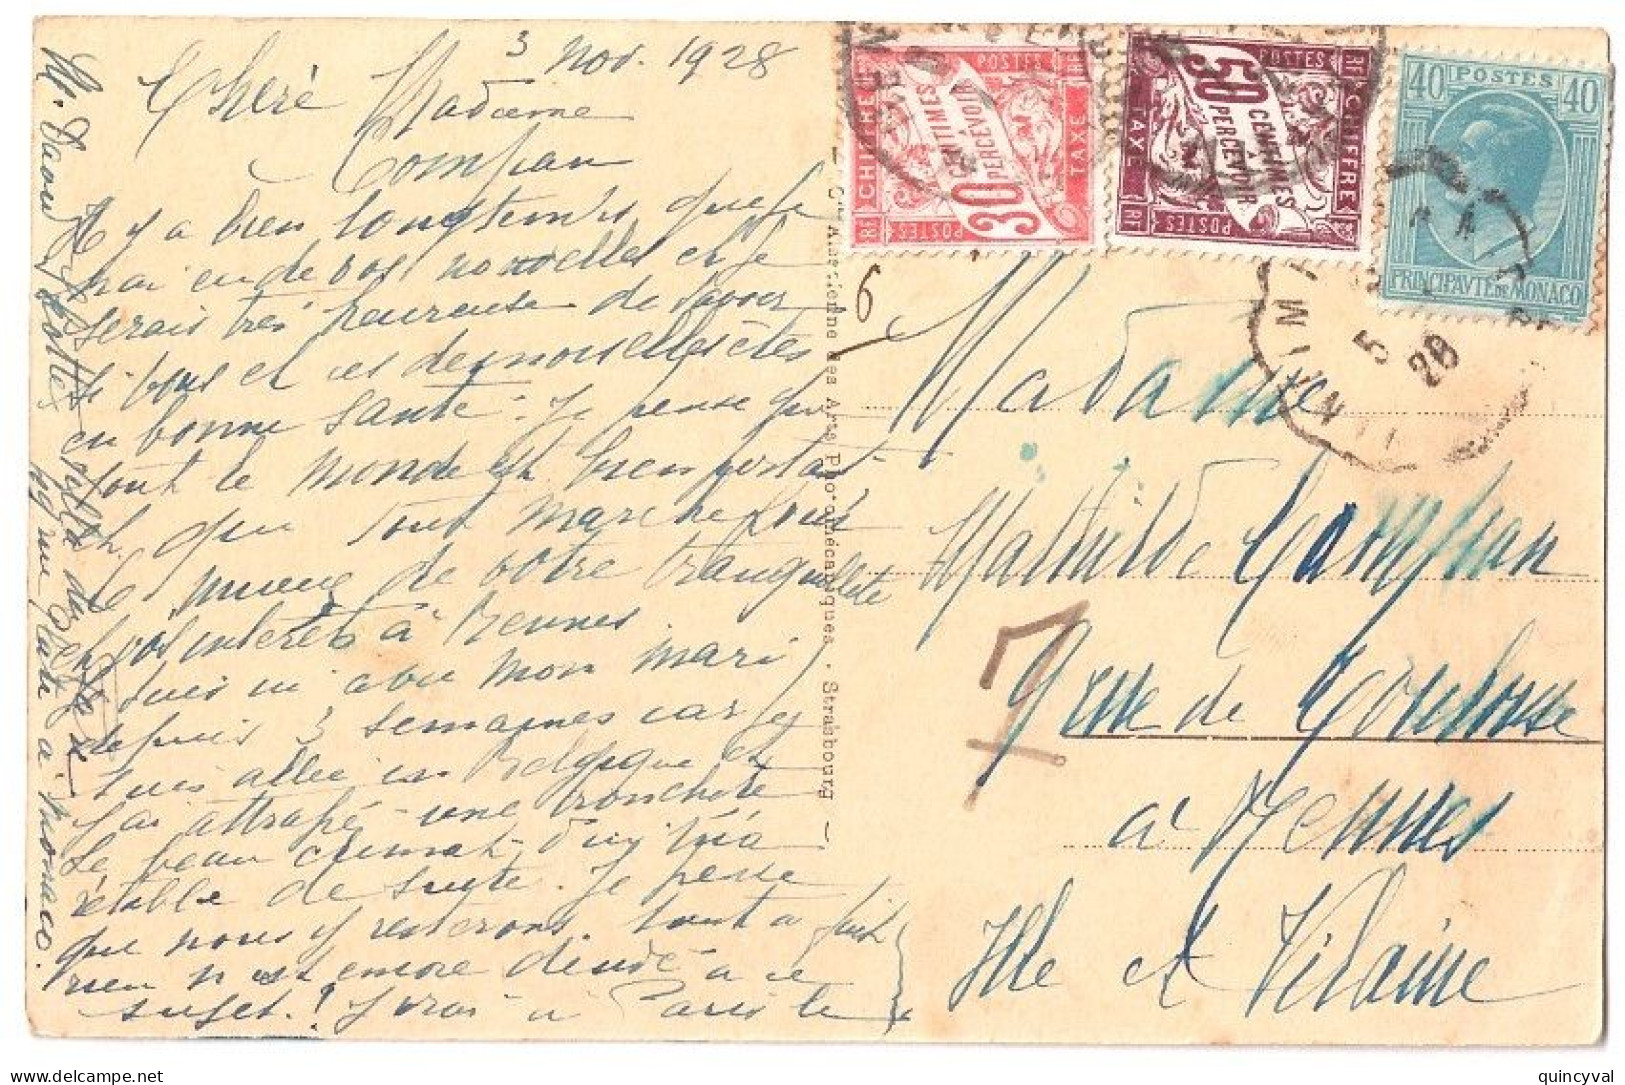 3 Nov. 1928
Chère Madame
Compan
Il y a bien longtemps que je
n'ai eu de vos nouvelles et je
serais très heureuse de savoir
si vous et ces demoiselles êtes
en bonne santé. Je pense que
tout le monde est bien portant
et que tout marche pour
le mieux de votre tranquillité
et vos intérêts à Rennes
suis ici avec mon mari
depuis 3 semaines car j'y
suis allée en Belgique et
j'ai attrapé une bronchite
Le beau climat d'ici m'a
rétablie de suite. Je pense
que nous y resterons tout à fait
rien n'est encore décidé à ce
sujet. J'irai à Paris le
à Monaco.
C Alsacienne des Arts Photomécaniques. Strasbourg
CHIFFRE TAXE
POSTES
30 CENTIMES
PERCEVOIR
RF
CHIFFRE TAXE
POSTES
50 CENTIMES
PERCEVOIR
RF
40 POSTES 40
PRINCIPAUTÉ DE MONACO
5
28
6
T
Madame
Mathilde Compan
9 rue de Toulouse
à Rennes
Ille et Vilaine
quincyval